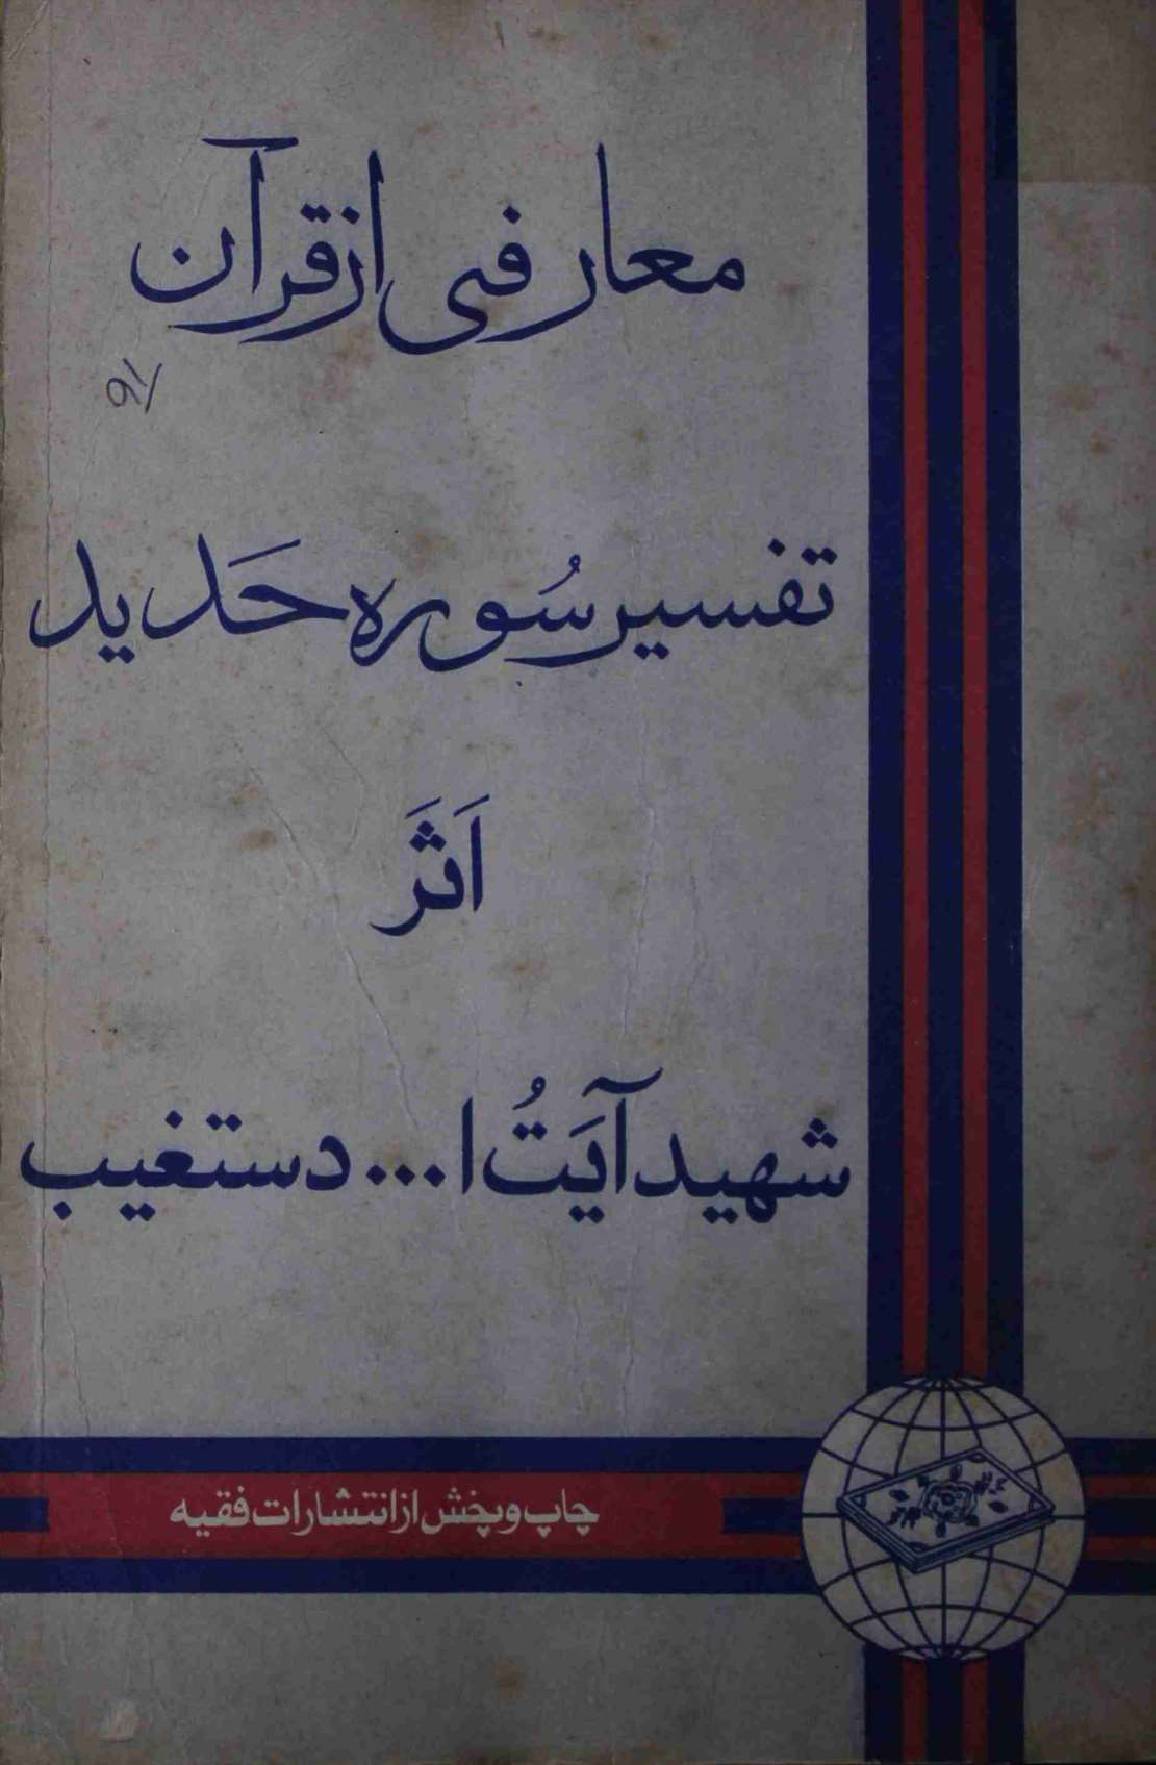 معارفی از قرآن
تفسیر سُوره حَدید
اَثَر
شهید آیَتُ ا... دستغیب
چاپ و پخش از انتشارات فقیه